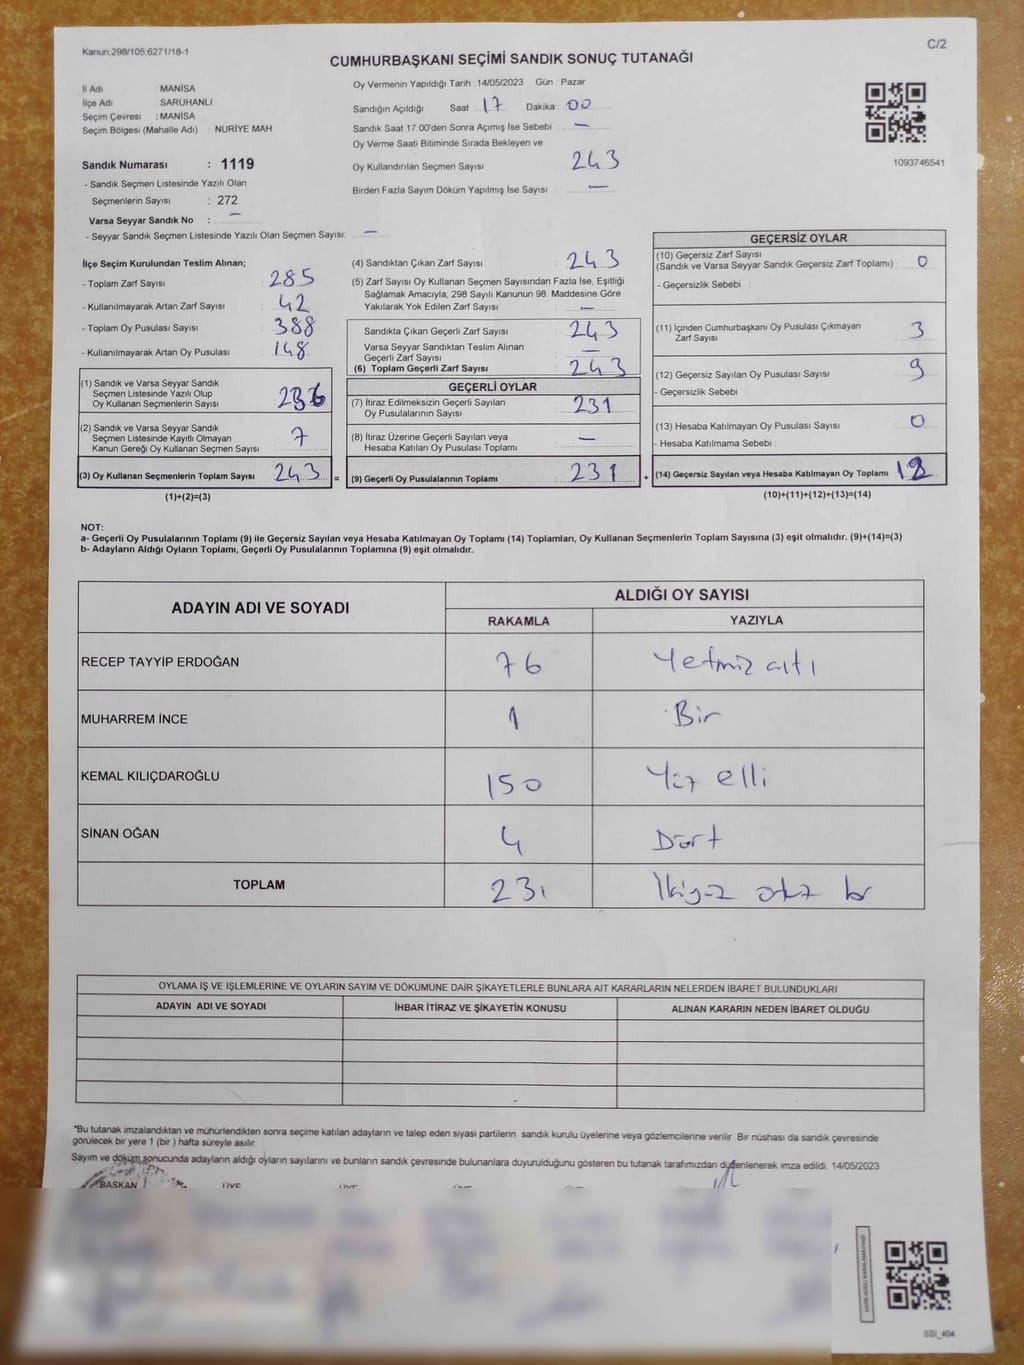 Kanun;298/105;6271/18-1
C/2
CUMHURBAŞKANI SEÇİMİ SANDIK SONUÇ TUTANAĞI
İl Adı : MANİSA
İlçe Adı : SARUHANLI
Seçim Çevresi : MANİSA
Seçim Bölgesi (Mahalle Adı) NURİYE MAH
Sandık Numarası : 1119
- Sandık Seçmen Listesinde Yazılı Olan
Seçmenlerin Sayısı : 272
Varsa Seyyar Sandık No : —
- Seyyar Sandık Seçmen Listesinde Yazılı Olan Seçmen Sayısı: —
Oy Vermenin Yapıldığı Tarih : 14/05/2023 Gün : Pazar
Sandığın Açıldığı Saat : 17 Dakika : 00
Sandık Saat 17:00'den Sonra Açımış İse Sebebi : —
Oy Verme Saati Bitiminde Sırada Bekleyen ve
Oy Kullandırılan Seçmen Sayısı : 243
Birden Fazla Sayım Döküm Yapılmış İse Sayısı : —
1093746541
İlçe Seçim Kurulundan Teslim Alınan;
- Toplam Zarf Sayısı : 285
- Kullanılmayarak Artan Zarf Sayısı : 42
- Toplam Oy Pusulası Sayısı : 388
- Kullanılmayarak Artan Oy Pusulası : 148
(1) Sandık ve Varsa Seyyar Sandık
Seçmen Listesinde Yazılı Olup
Oy Kullanan Seçmenlerin Sayısı : 236
(2) Sandık ve Varsa Seyyar Sandık
Seçmen Listesinde Kayıtlı Olmayan
Kanun Gereği Oy Kullanan Seçmen Sayısı : 7
(3) Oy Kullanan Seçmenlerin Toplam Sayısı : 243 =
(1)+(2)=(3)
(4) Sandıktan Çıkan Zarf Sayısı : 243
(5) Zarf Sayısı Oy Kullanan Seçmen Sayısından Fazla İse, Eşitliği
Sağlamak Amacıyla; 298 Sayılı Kanunun 98. Maddesine Göre
Yakılarak Yok Edilen Zarf Sayısı : —
Sandıkta Çıkan Geçerli Zarf Sayısı : 243
Varsa Seyyar Sandıktan Teslim Alınan
Geçerli Zarf Sayısı : —
(6) Toplam Geçerli Zarf Sayısı : 243
GEÇERLİ OYLAR
(7) İtiraz Edilmeksizin Geçerli Sayılan
Oy Pusulalarının Sayısı : 231
(8) İtiraz Üzerine Geçerli Sayılan veya
Hesaba Katılan Oy Pusulası Toplamı : —
(9) Geçerli Oy Pusulalarının Toplamı : 231 +
GEÇERSİZ OYLAR
(10) Geçersiz Zarf Sayısı
(Sandık ve Varsa Seyyar Sandık Geçersiz Zarf Toplamı) : 0
- Geçersizlik Sebebi :
(11) İçinden Cumhurbaşkanı Oy Pusulası Çıkmayan
Zarf Sayısı : 3
(12) Geçersiz Sayılan Oy Pusulası Sayısı : 9
- Geçersizlik Sebebi :
(13) Hesaba Katılmayan Oy Pusulası Sayısı : 0
- Hesaba Katılmama Sebebi :
(14) Geçersiz Sayılan veya Hesaba Katılmayan Oy Toplamı : 12
(10)+(11)+(12)+(13)=(14)
NOT:
a- Geçerli Oy Pusulalarının Toplamı (9) ile Geçersiz Sayılan veya Hesaba Katılmayan Oy Toplamı (14) Toplamları, Oy Kullanan Seçmenlerin Toplam Sayısına (3) eşit olmalıdır. (9)+(14)=(3)
b- Adayların Aldığı Oyların Toplamı, Geçerli Oy Pusulalarının Toplamına (9) eşit olmalıdır.
ADAYIN ADI VE SOYADI ALDIĞI OY SAYISI
RAKAMLA YAZIYLA
RECEP TAYYİP ERDOĞAN 76 Yetmiş altı
MUHARREM İNCE 1 Bir
KEMAL KILIÇDAROĞLU 150 Yüz elli
SİNAN OĞAN 4 Dört
TOPLAM 231 İkiyüz otuz bir
OYLAMA İŞ VE İŞLEMLERİNE VE OYLARIN SAYIM VE DÖKÜMÜNE DAİR ŞİKAYETLERLE BUNLARA AİT KARARLARIN NELERDEN İBARET BULUNDUKLARI
ADAYIN ADI VE SOYADI İHBAR İTİRAZ VE ŞİKAYETİN KONUSU ALINAN KARARIN NEDEN İBARET OLDUĞU
"Bu tutanak imzalandıktan ve mühürlendikten sonra seçime katılan adayların ve talep eden siyasi partilerin sandık kurulu üyelerine veya gözlemcilerine verilir .Bir nüshası da sandık çevresinde
görülecek bir yere 1 (bir ) hafta süreyle asılır.
Sayım ve döküm sonucunda adayların aldığı oyların sayılarını ve bunların sandık çevresinde bulunanlara duyurulduğunu gösteren bu tutanak tarafımızdan düzenlenerek imza edildi. 14/05/2023
BAŞKAN ÜYE ÜYE ÜYE ÜYE
SSI_404